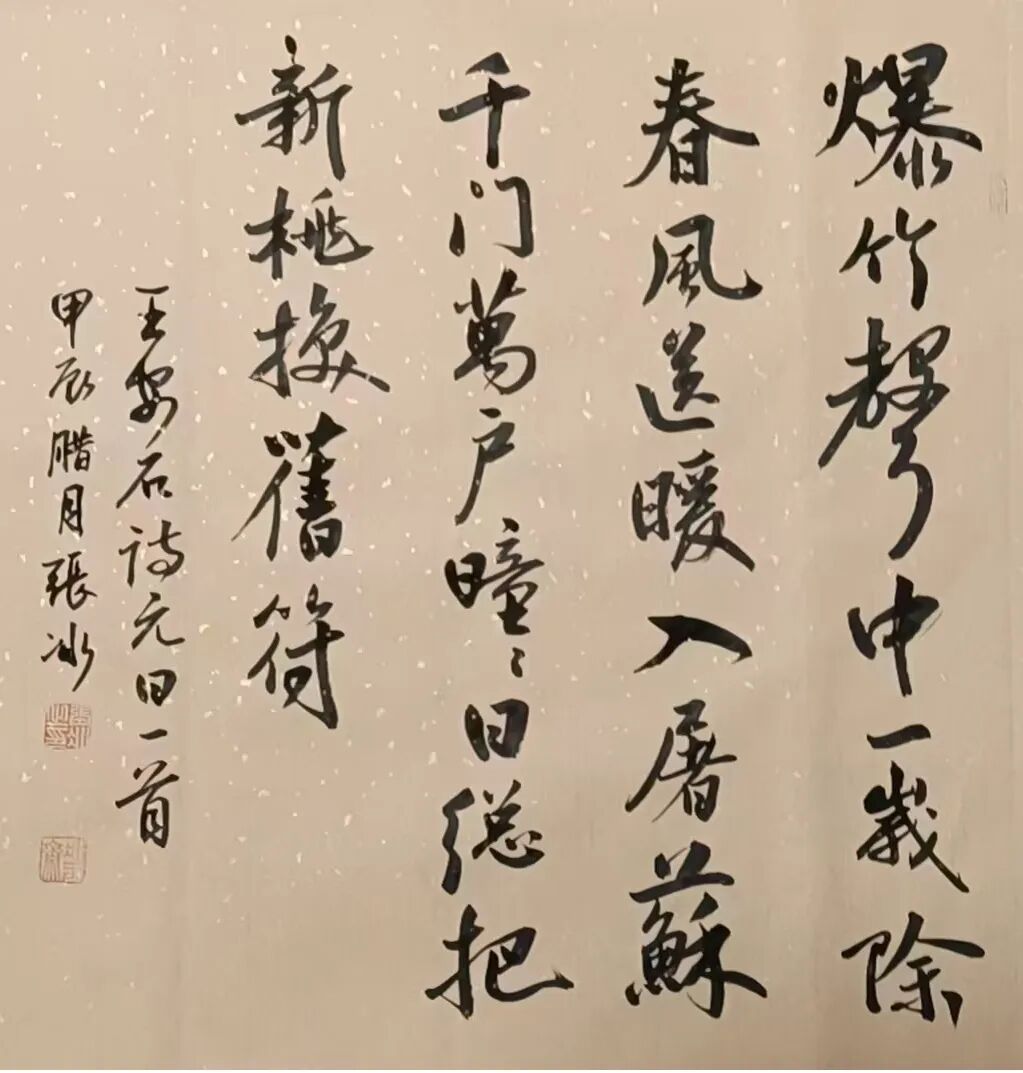 爆竹聲中一歲除
春風送暖入屠蘇
千门萬户曈〻日總把
新桃換舊符
王安石詩元日一首
甲辰腊月張冰